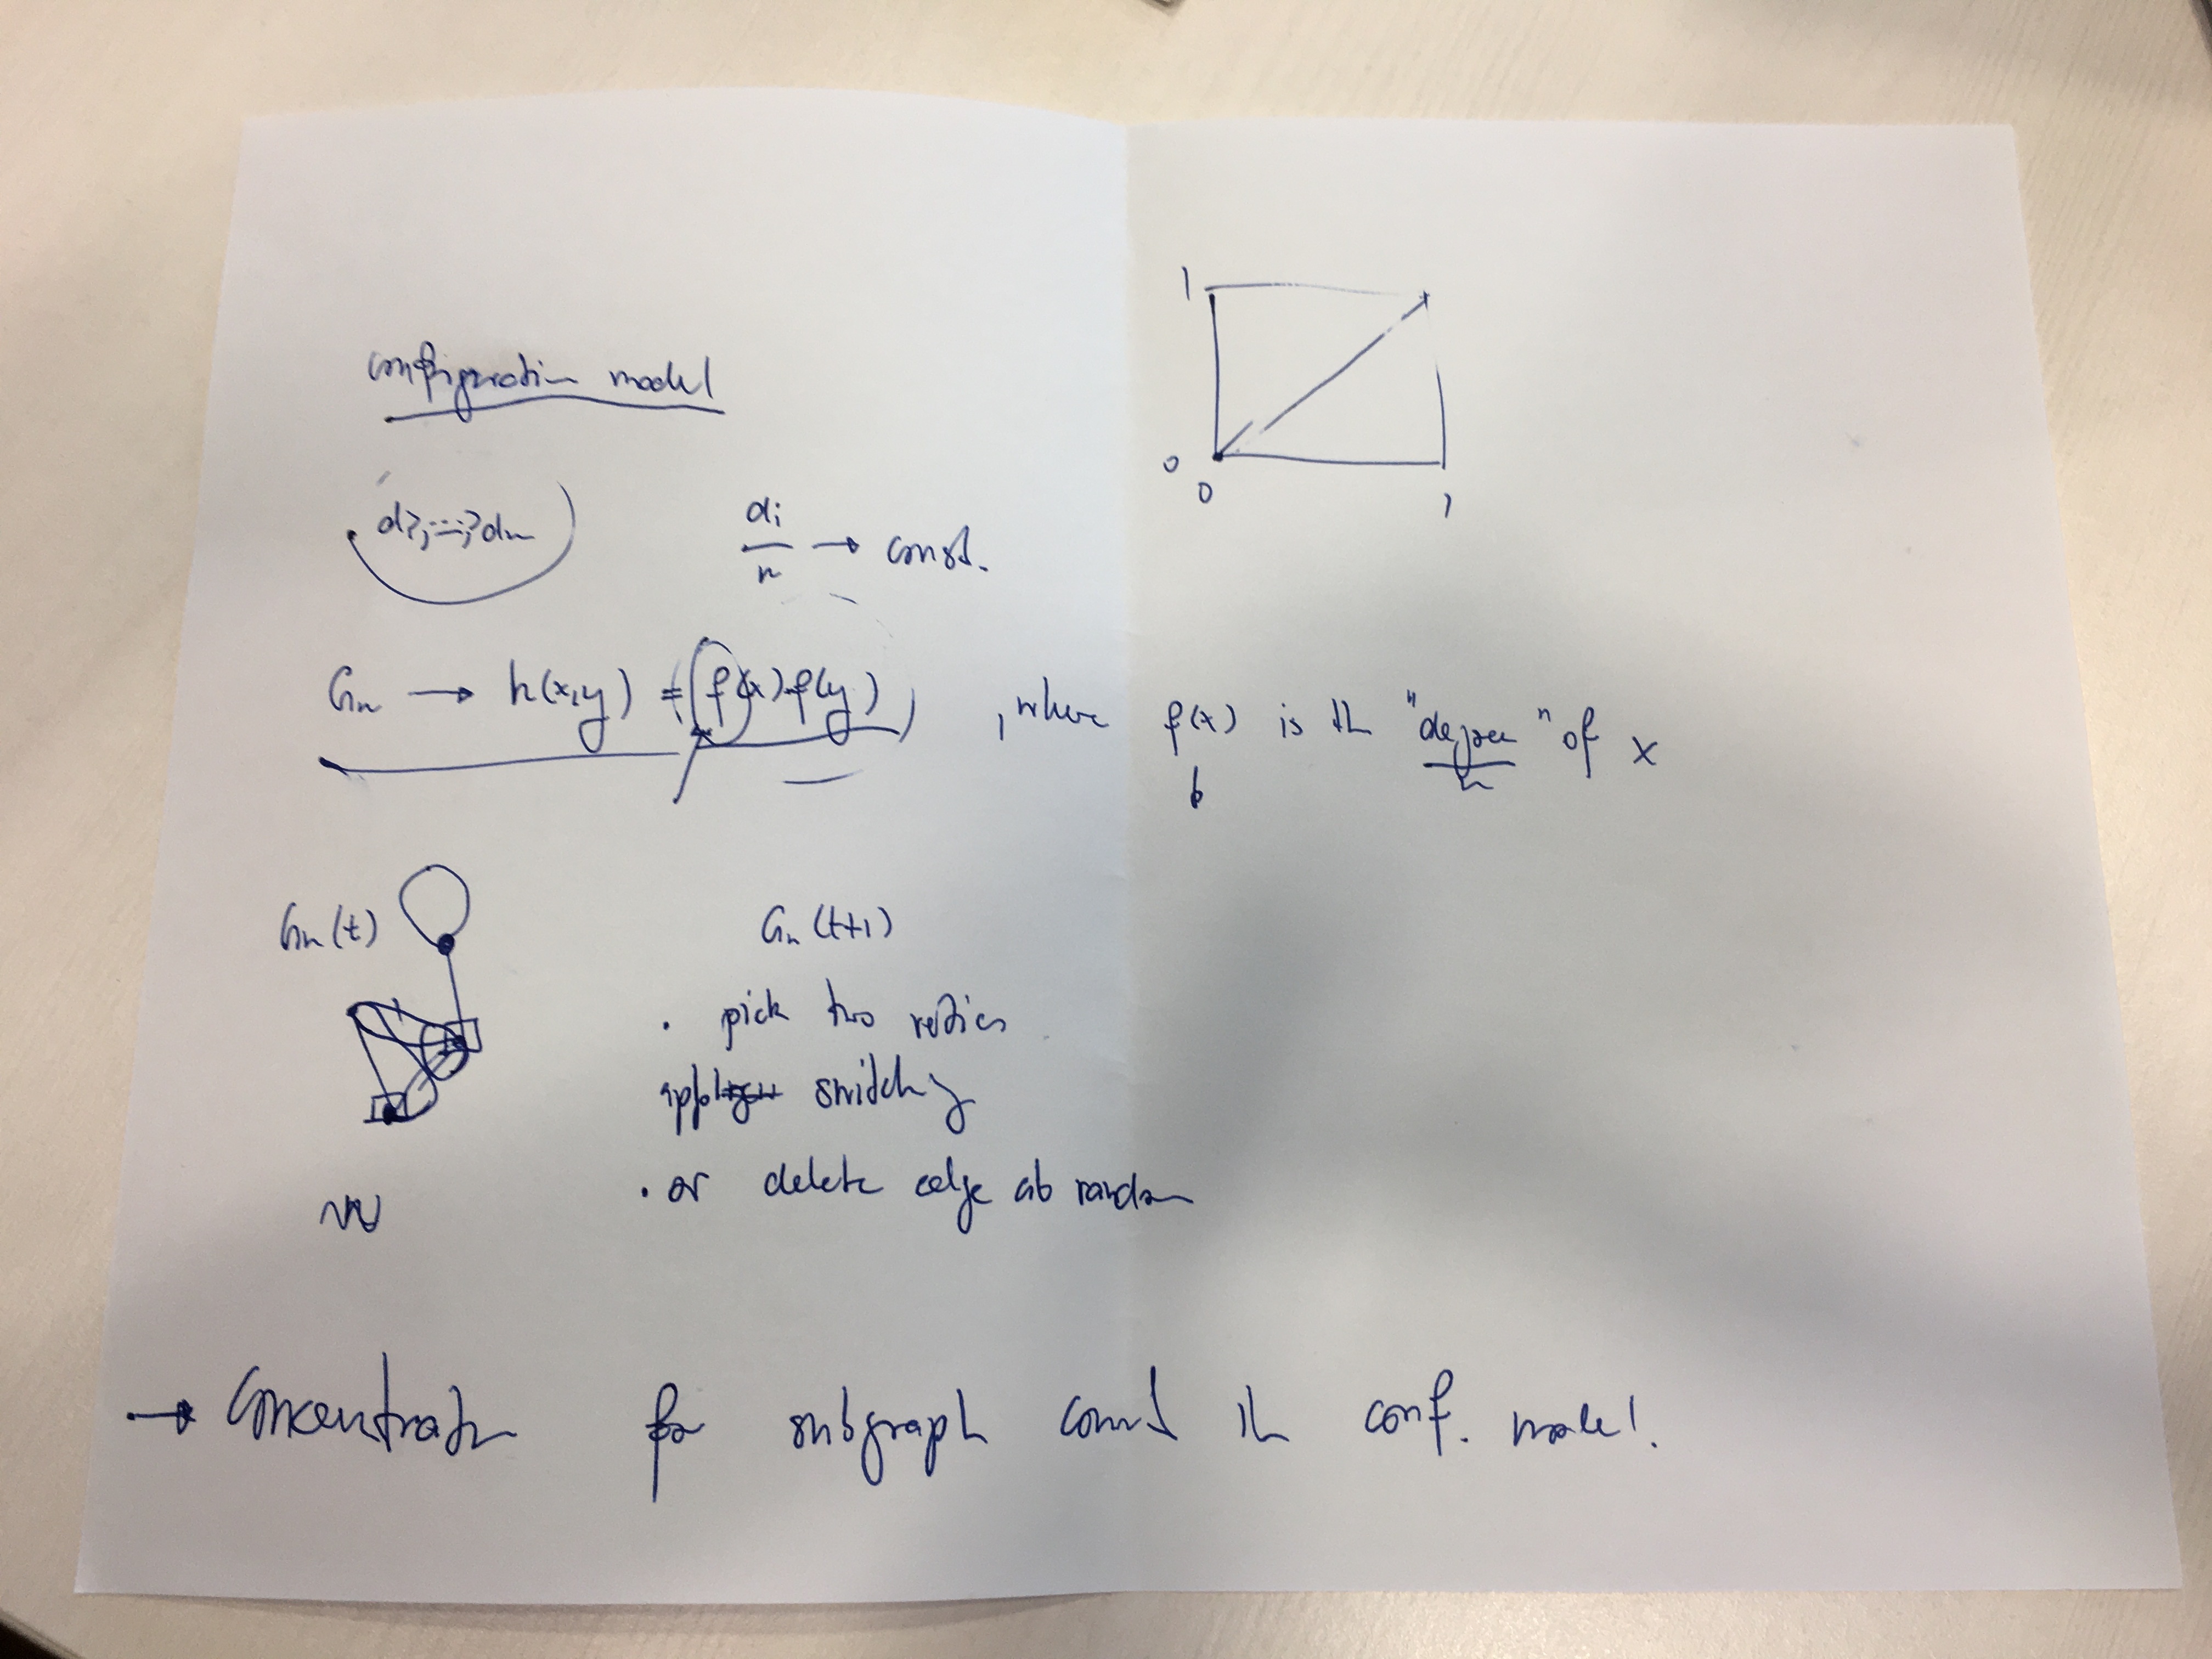 configuration model
1
0
0
1
d1, ..., dn
di/n → const.
Gn → h(x,y) = (f(x)·f(y)), where f(x) is the "degree/n" of x
Gn(t)
Gn(t+1)
· pick two vertices
apply switching
· or delete edge at random
→ Concentration for subgraph count in conf. model.